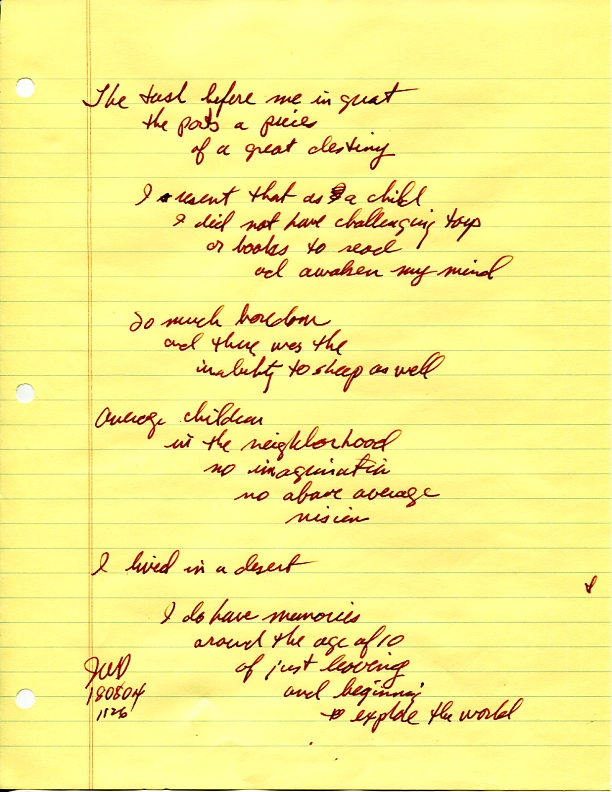 The task before me in great
the parts a pieces
of a great destiny
I resent that as a child
I did not have challenging toys
or books to read
and awaken my mind
So much boredom
and there was the
inability to sleep as well
Average children
in the neighborhood
no imagination
no above average
vision
I lived in a desert
I do have memories
around the age of 10
of just leaving
and beginning
to explore the world
180804
1126